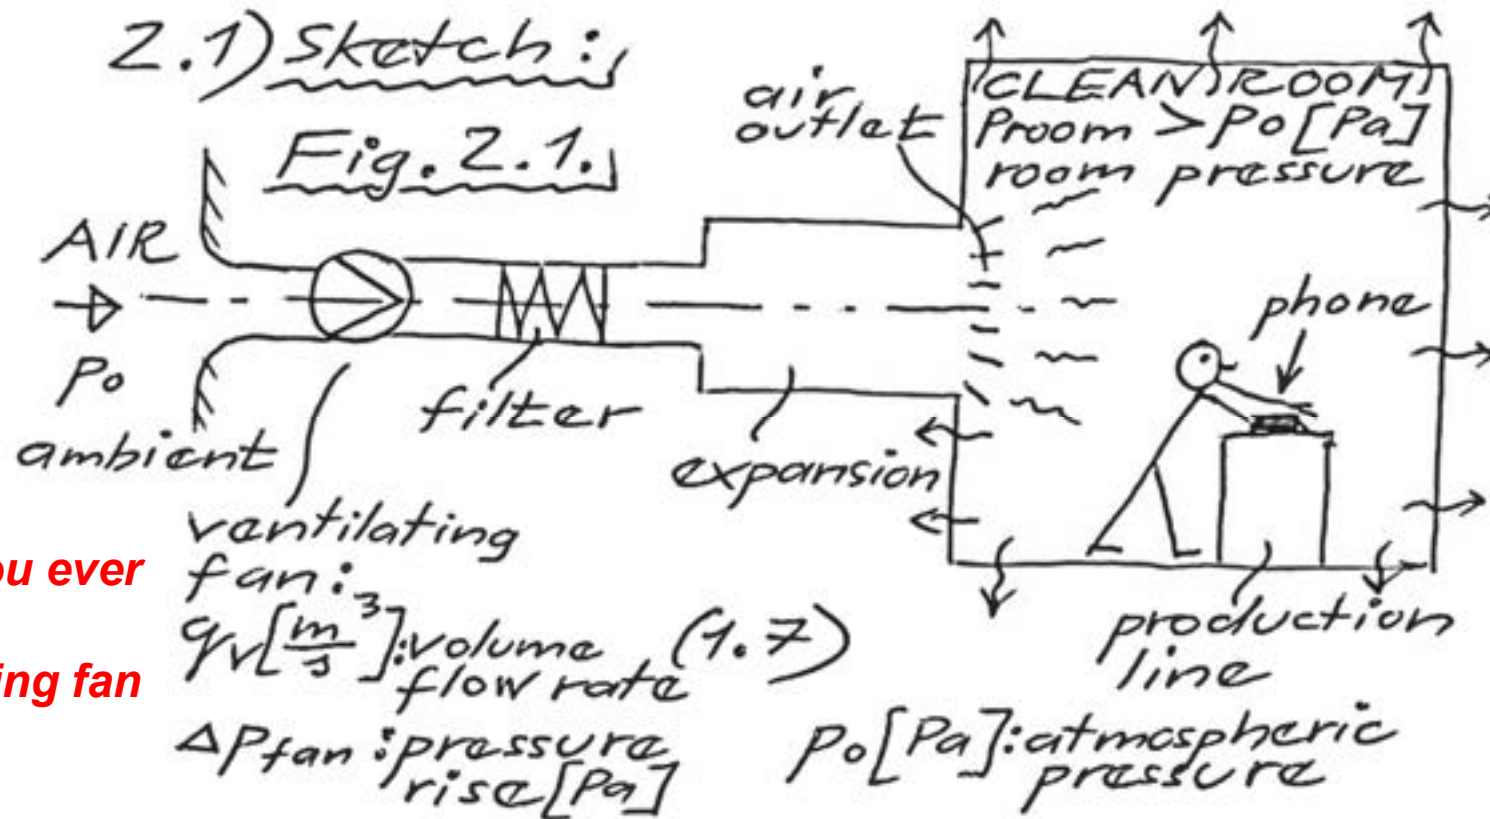 2.1) Sketch:
Fig. 2.1.
AIR
Po
ambient
ventilating
fan:
qv[m³/s]: volume
flow rate (1.7)
ΔPfan: pressure
rise [Pa]
filter
expansion
air
outlet
CLEAN ROOM
Proom > Po [Pa]
room pressure
phone
production
line
Po [Pa]: atmospheric
pressure
ou ever
ing fan